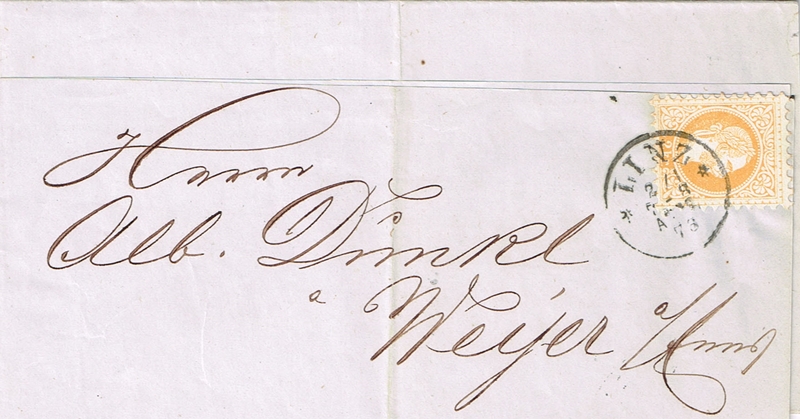 Herrn
Alb. Dunkl
a
Weyer
LINZ